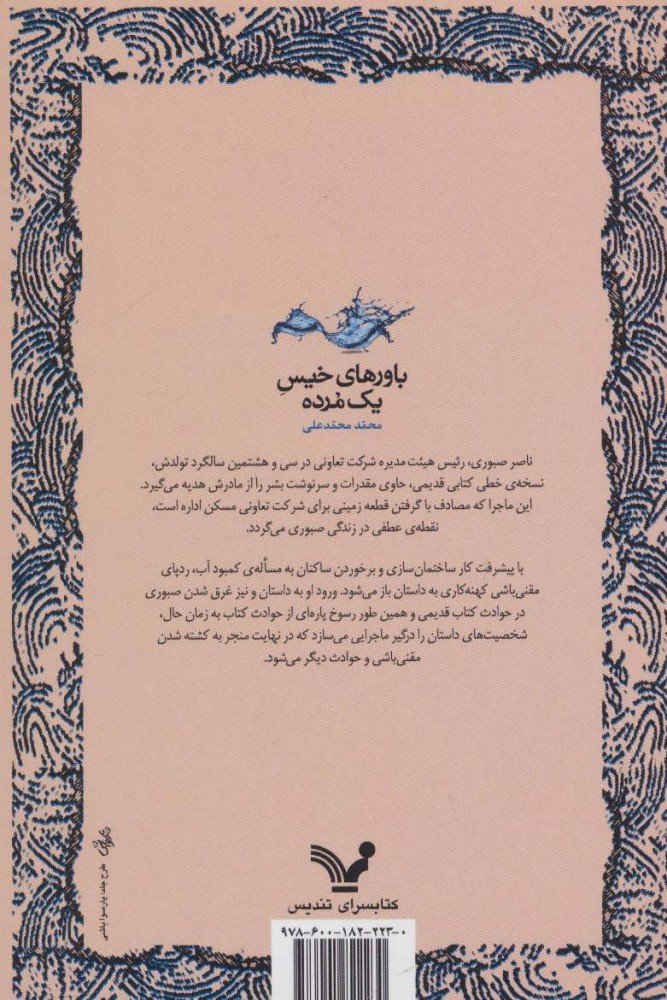 باورهای خیسِ
یک مُرده
محمّد محمّدعلی
ناصر صبوری، رئیس هیئت مدیره شرکت تعاونی در سی و هشتمین سالگرد تولدش،
نسخه‌ی خطی کتابی قدیمی، حاوی مقدرات و سرنوشت بشر را از مادرش هدیه می‌گیرد.
این ماجرا که مصادف با گرفتن قطعه زمینی برای شرکت تعاونی مسکن اداره است،
نقطه‌ی عطفی در زندگی صبوری می‌گردد.
با پیشرفت کار ساختمان‌سازی و برخوردن ساکنان به مسأله‌ی کمبود آب، ردپای
مقنی‌باشی کهنه‌کاری به داستان باز می‌شود. ورود او به داستان و نیز غرق شدن صبوری
در حوادث کتاب قدیمی و همین طور رسوخ پاره‌ای از حوادث کتاب به زمان حال،
شخصیت‌های داستان را درگیر ماجرایی می‌سازد که در نهایت منجر به کشته شدن
مقنی‌باشی و حوادث دیگر می‌شود.
طرح جلد: پارسوا باشی
کتابسرای تندیس
۹۷۸-۶۰۰-۱۸۲-۲۲۳-۰